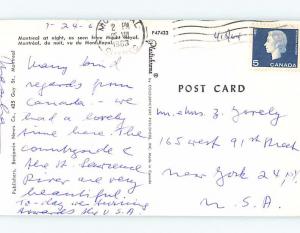 7-24-6
Montreal at night, as seen from Mount Royal.
Montréal, de nuit, vu du Mont-Royal.
P47433
PM
1963
5
CANADA
POST CARD
Many kind
regards from
Canada - we
had a lovely
time here. The
countryside &
the St. Lawrence
River are very
beautiful.
To-day we
towards the U.S.A.
Mr. & Mrs. Z. Lovely
165 West 91st Street
New York 24
U.S.A.
Publishers, Benjamin News Co., 485 Guy St., Montreal
Plastichrome